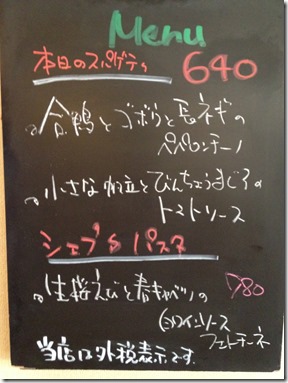 Menu
本日のスパゲティ 640
合鴨とゴボウと長ネギの
ペペロンチーノ
小さな帆立とびんちょうまぐろの
トマトソース
シェフのパスタ
生桜えびと春キャベツの 780
白ワインソース
フェットチーネ
当店は外税表示です。